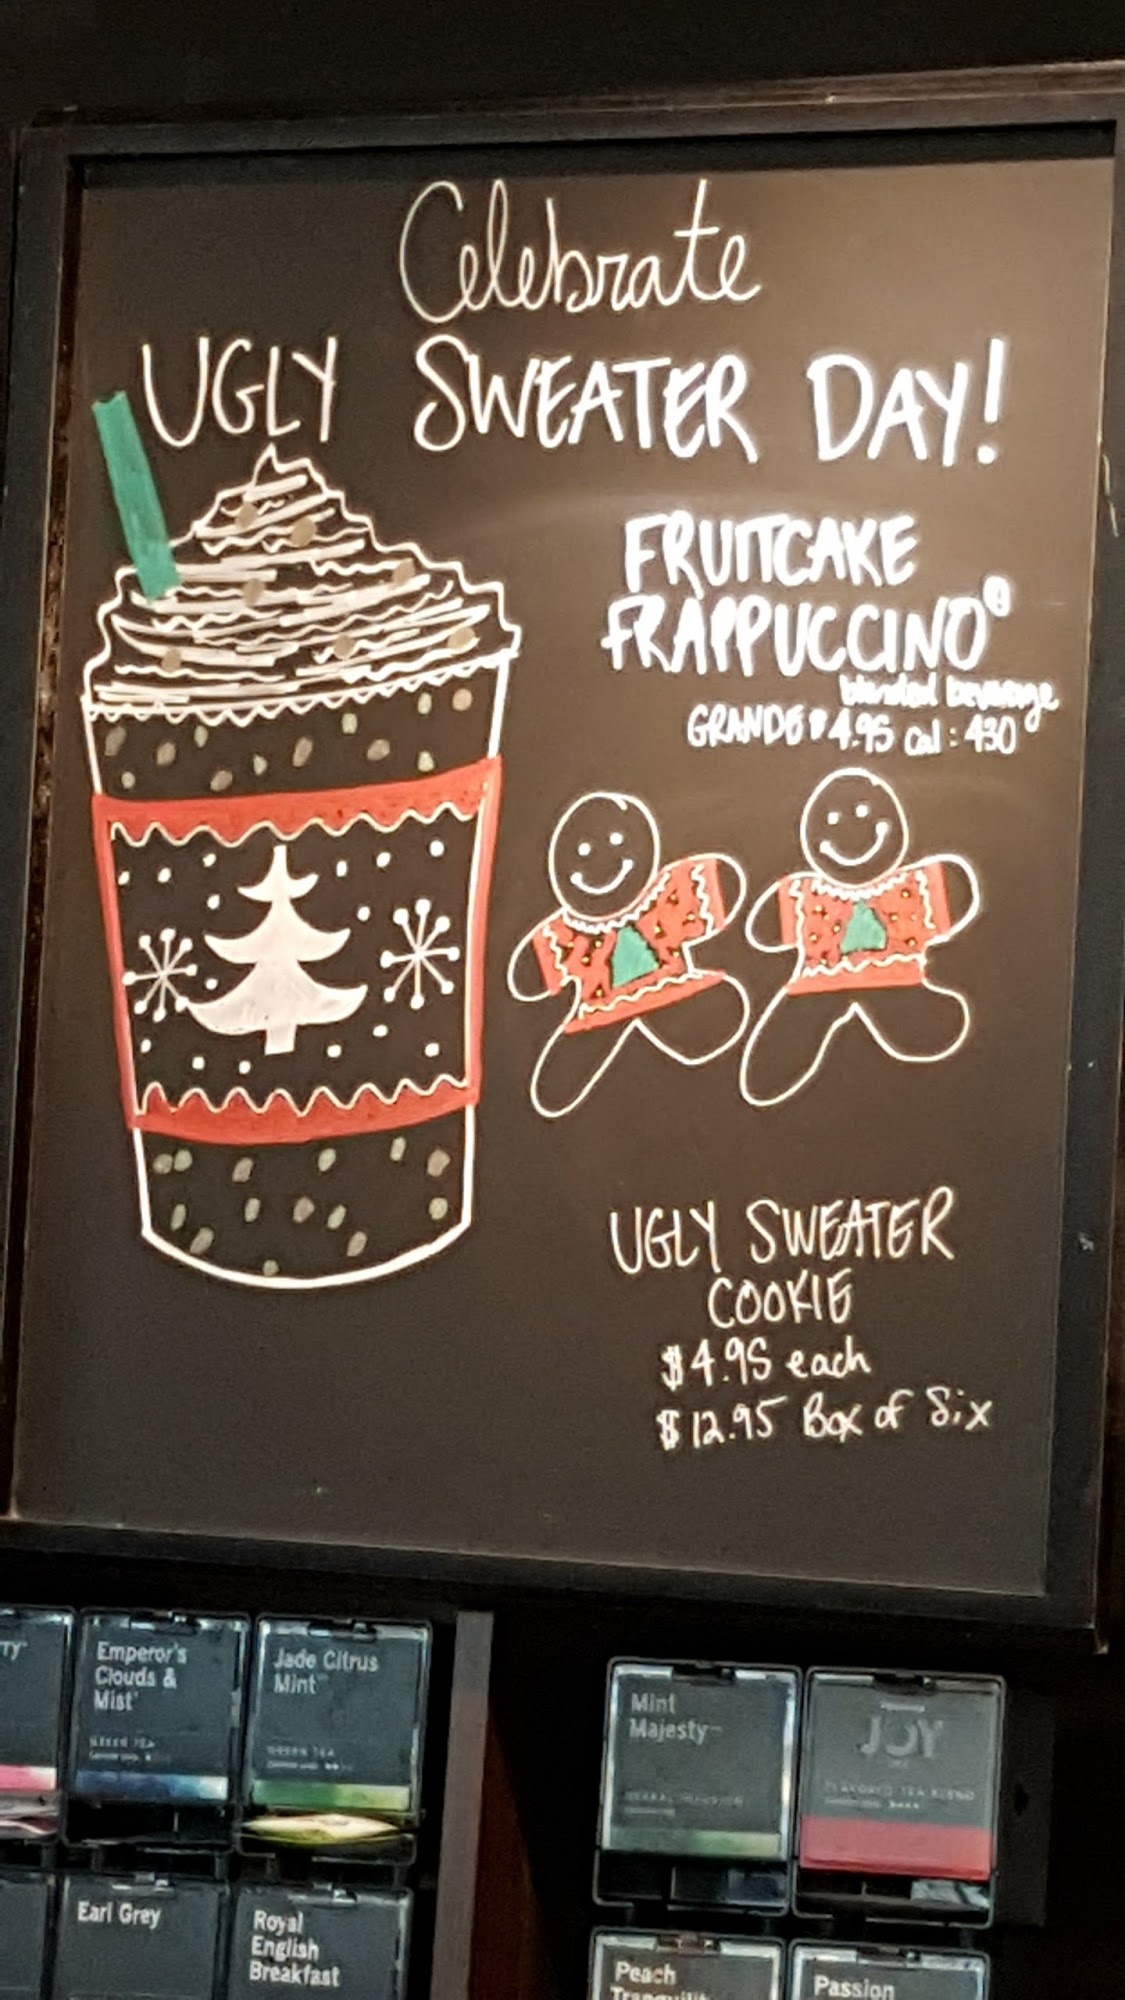 Celebrate
UGLY SWEATER DAY!
FRUITCAKE
FRAPPUCCINO®
blended beverage
GRANDE $4.95 cal: 430
UGLY SWEATER
COOKIE
$4.95 each
$12.95 Box of Six
TY™
Emperor's
Clouds &
Mist™
GREEN TEA
Jade Citrus
Mint™
GREEN TEA
Mint
Majesty™
HERBAL INFUSION
JOY
FLAVORED TEA BLEND
Earl Grey
Royal
English
Breakfast
Peach
Tranquilit
Passion